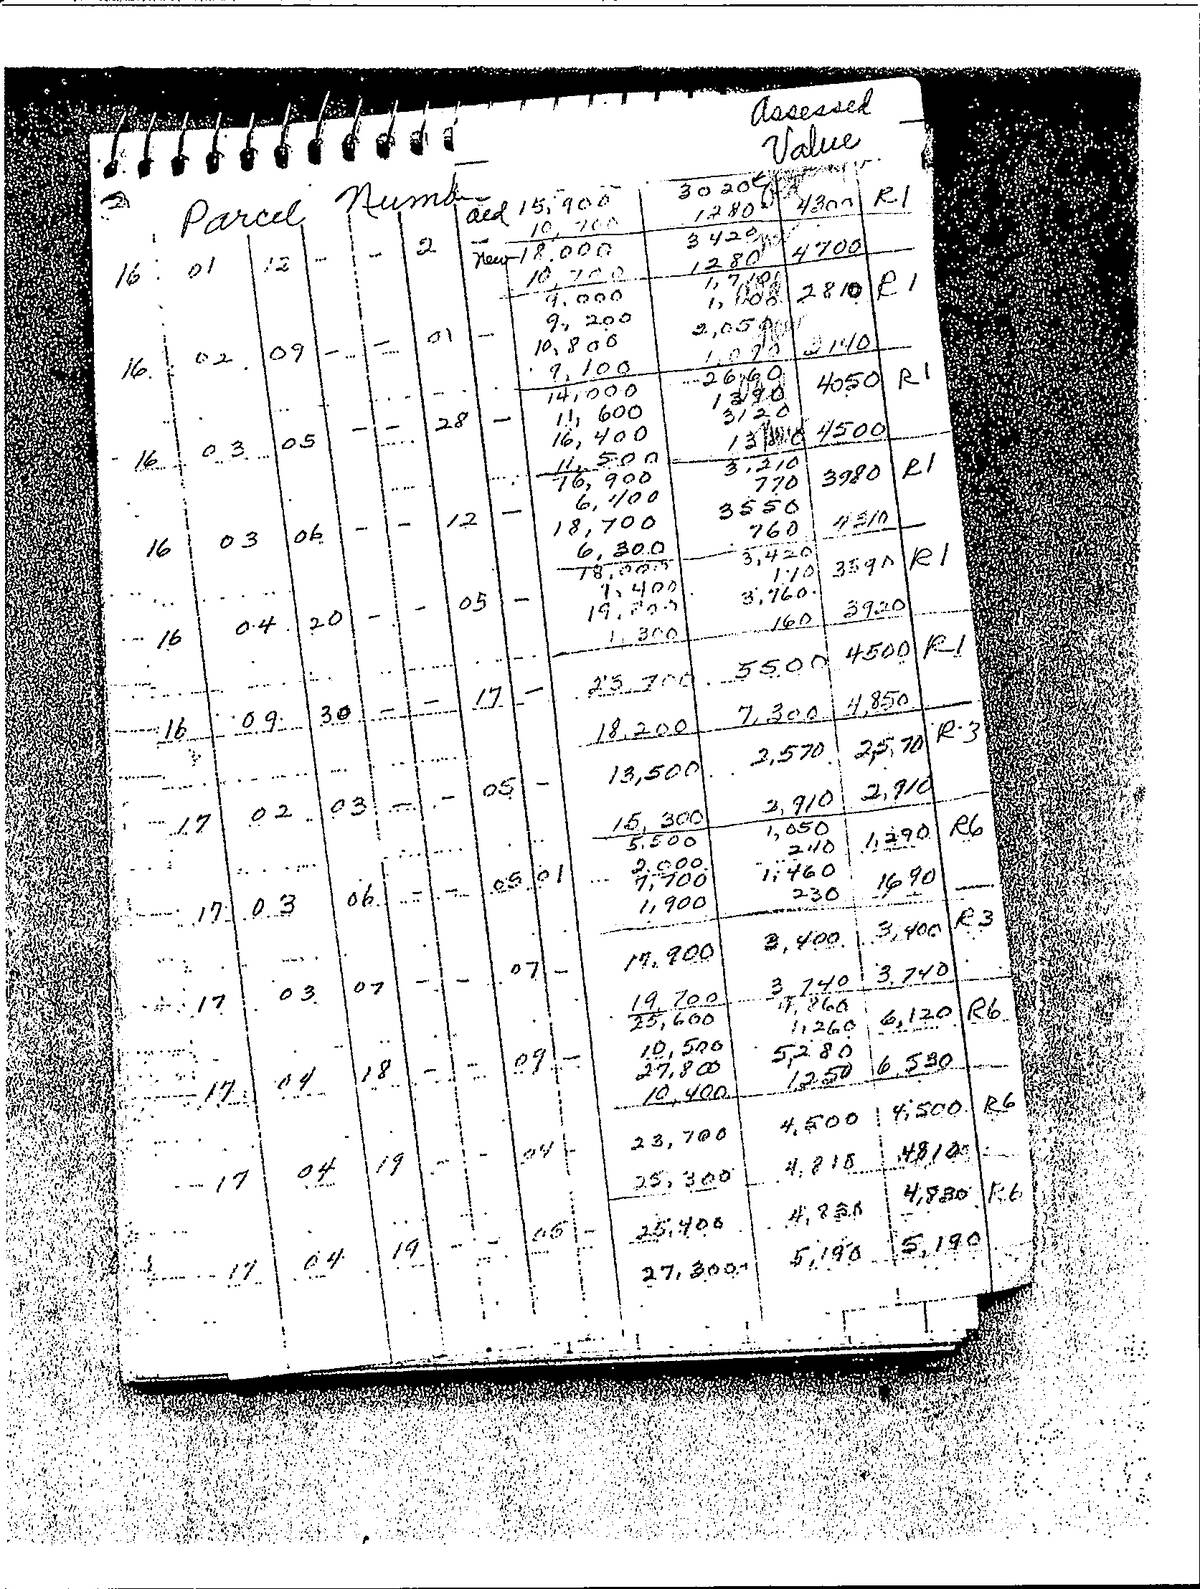 Assessed
Value
2 Parcel Numb
old 15,900 3020 4300 R1
10,700 1280
16 01 12 - - 2 - New 18,000 3420 4700
10,700 1280
9,000 2810 R1
9,200
16 02 09 - - 01 - 10,800 2,050 3140
9,100 1,090
14,000 2660 4050 R1
11,600 1390
16 03 05 - - 28 - 16,400 3120 4500
11,500
16,900 3,210 3980 R1
6,400 770
16 03 06 - - 12 - 18,700 3550 4310
6,300 760
18,000 3,420 3590 R1
1,400 170
16 04 20 - - 05 - 3,760 3920
1,300 160
23,700 5500 4500 R1
16 09 30 - - 17 - 18,200 7,300 4,850
13,500 2,570 25,70 R-3
17 02 03 - - 05 - 15,300 2,910 2,910
5,500 1,050 1,290 R6
2,000 240
17 03 06 - - 05 01 7,700 1,460 1690
1,900 230
17,900 3,400 3,400 R3
17 03 07 - - 07 - 19,700 3,740 3,740
25,600 4,860 6,120 R6
10,500 1,260
17 04 18 - - 09 - 27,800 5,280 6,530
10,400 1250
23,700 4,500 4,500 R6
17 04 19 - - 04 - 25,300 4,810 4810
25,400 4,830 4,830 R6
17 04 19 - - 05 - 27,300 5,190 5,190